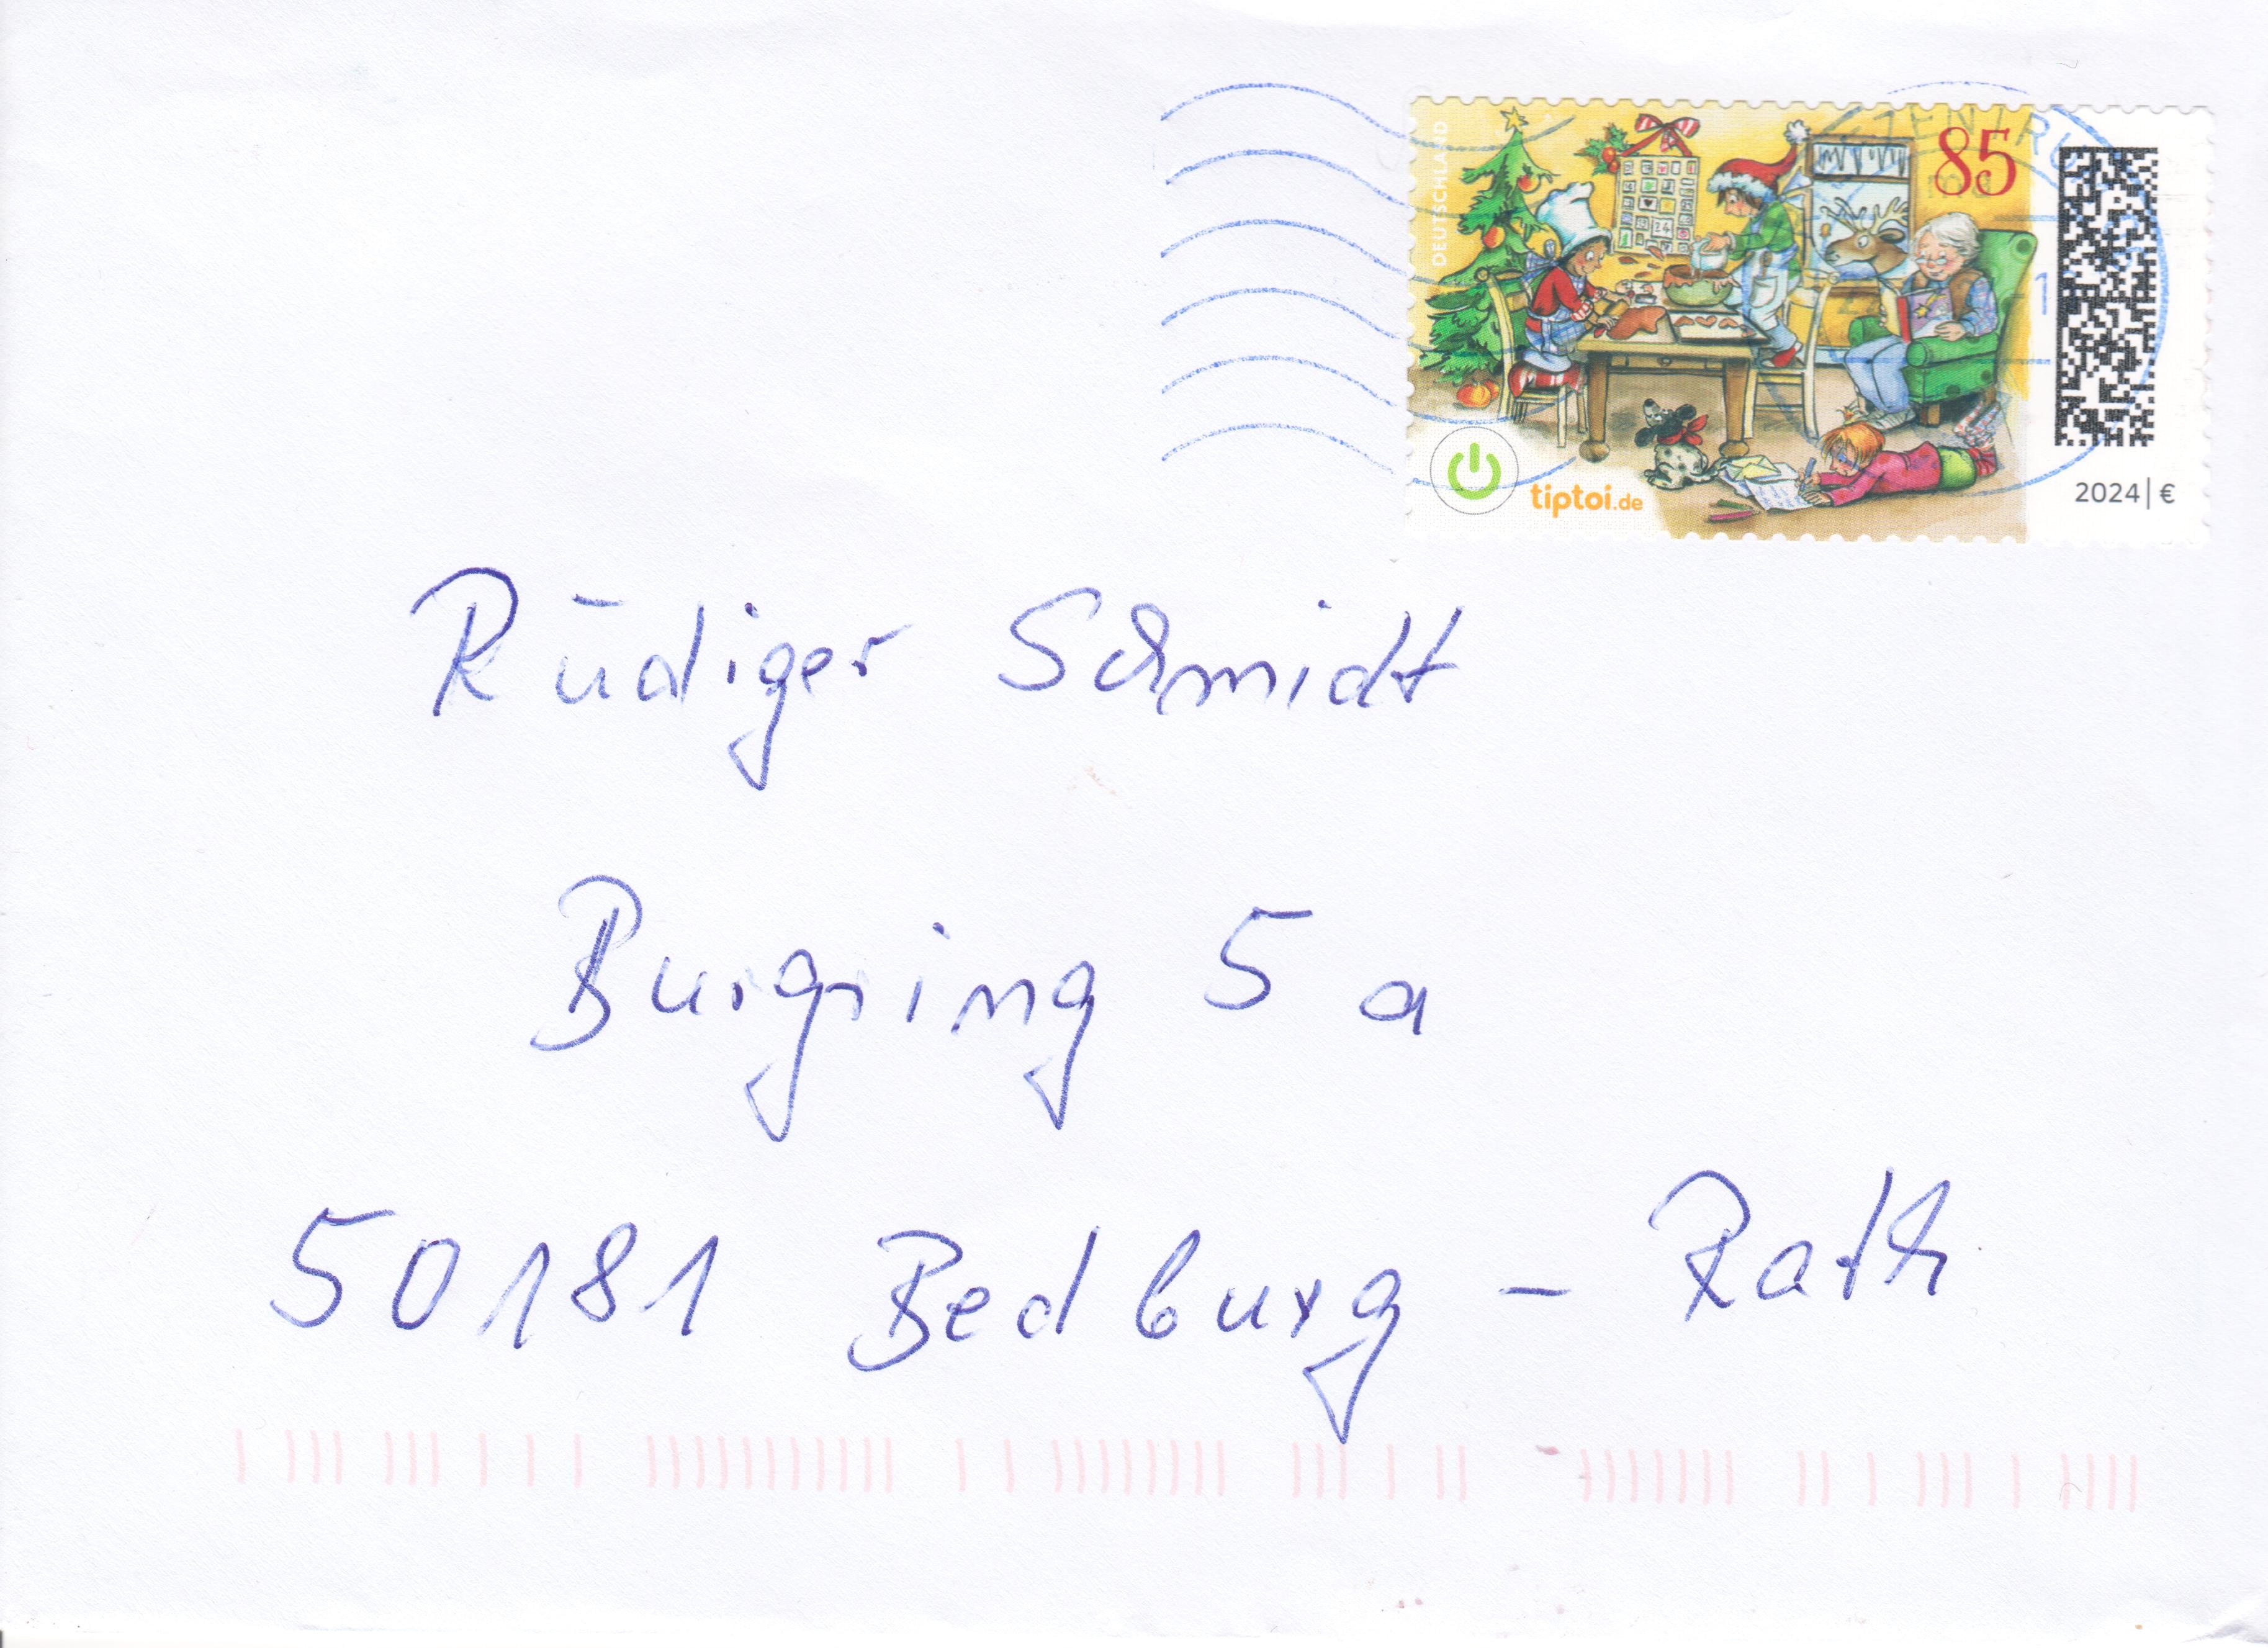 DEUTSCHLAND
85
24
tiptoi.de
2024|€
Rüdiger Schmidt
Burgring 5 a
50181 Bedburg - Rath